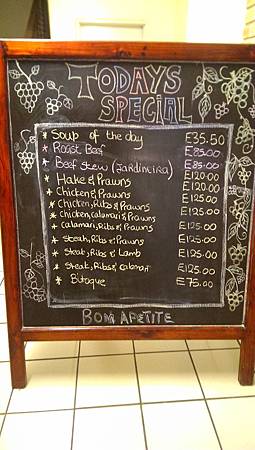 TODAYS
SPECIAL
* Soup of the day E35.50
* Roast Beef E85.00
* Beef stew (Jardineira) E85.00
* Hake & Prawns E120.00
* Chicken & Prawns E120.00
* Chicken, Ribs & Prawns E125.00
* Chicken, Calamari & Prawns E125.00
* Calamari, Ribs & Prawns E125.00
* Steak, Ribs & Prawns E125.00
* Steak, Ribs & Lamb E125.00
* Steak, Ribs & Calamari E125.00
* Bitoque E75.00
BOM APETITE